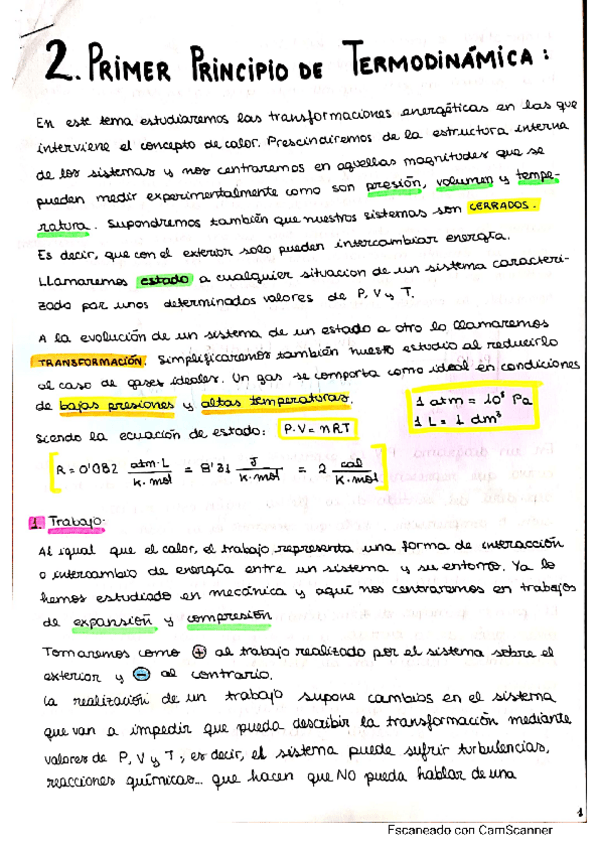 2. PRIMER PRINCIPIO DE TERMODINÁMICA:
En este tema estudiaremos las transformaciones energéticas en las que
interviene el concepto de calor. Prescindiremos de la estructura interna
de los sistemas y nos centraremos en aquellas magnitudes que se
pueden medir experimentalmente como son presión, volumen y tempe-
ratura. Supondremos también que nuestros sistemas son CERRADOS.
Es decir, que con el exterior solo pueden intercambiar energía.
Llamaremos estado a cualquier situacion de un sistema caracteri-
zado por unos determinados valores de P, V y T.
A la evolución de un sistema de un estado a otro lo llamaremos
TRANSFORMACIÓN. Simplificaremos también nuestro estudio al reducirlo
al caso de gases ideales. Un gas se comporta como ideal en condiciones
de bajas presiones y altas temperaturas.
1 atm = 10⁵ Pa
1 L = 1 dm³
Siendo la ecuación de estado: P·V = nRT
R = 0'082 atm·L / K·mol = 8'31 J / K·mol = 2 cal / K·mol
1. Trabajo:
Al igual que el calor, el trabajo representa una forma de interacción
o intercambio de energía entre un sistema y su entorno. Ya lo
hemos estudiado en mecánica y aquí nos centraremos en trabajos
de expansión y compresión
Tomaremos como + al trabajo realizado por el sistema sobre el
exterior y - al contrario.
La realización de un trabajo supone cambios en el sistema
que van a impedir que pueda describir la transformación mediante
valores de P, V y T; es decir, el sistema puede sufrir turbulencias,
reacciones químicas... que hacen que NO pueda hablar de una
1
Escaneado con CamScanner